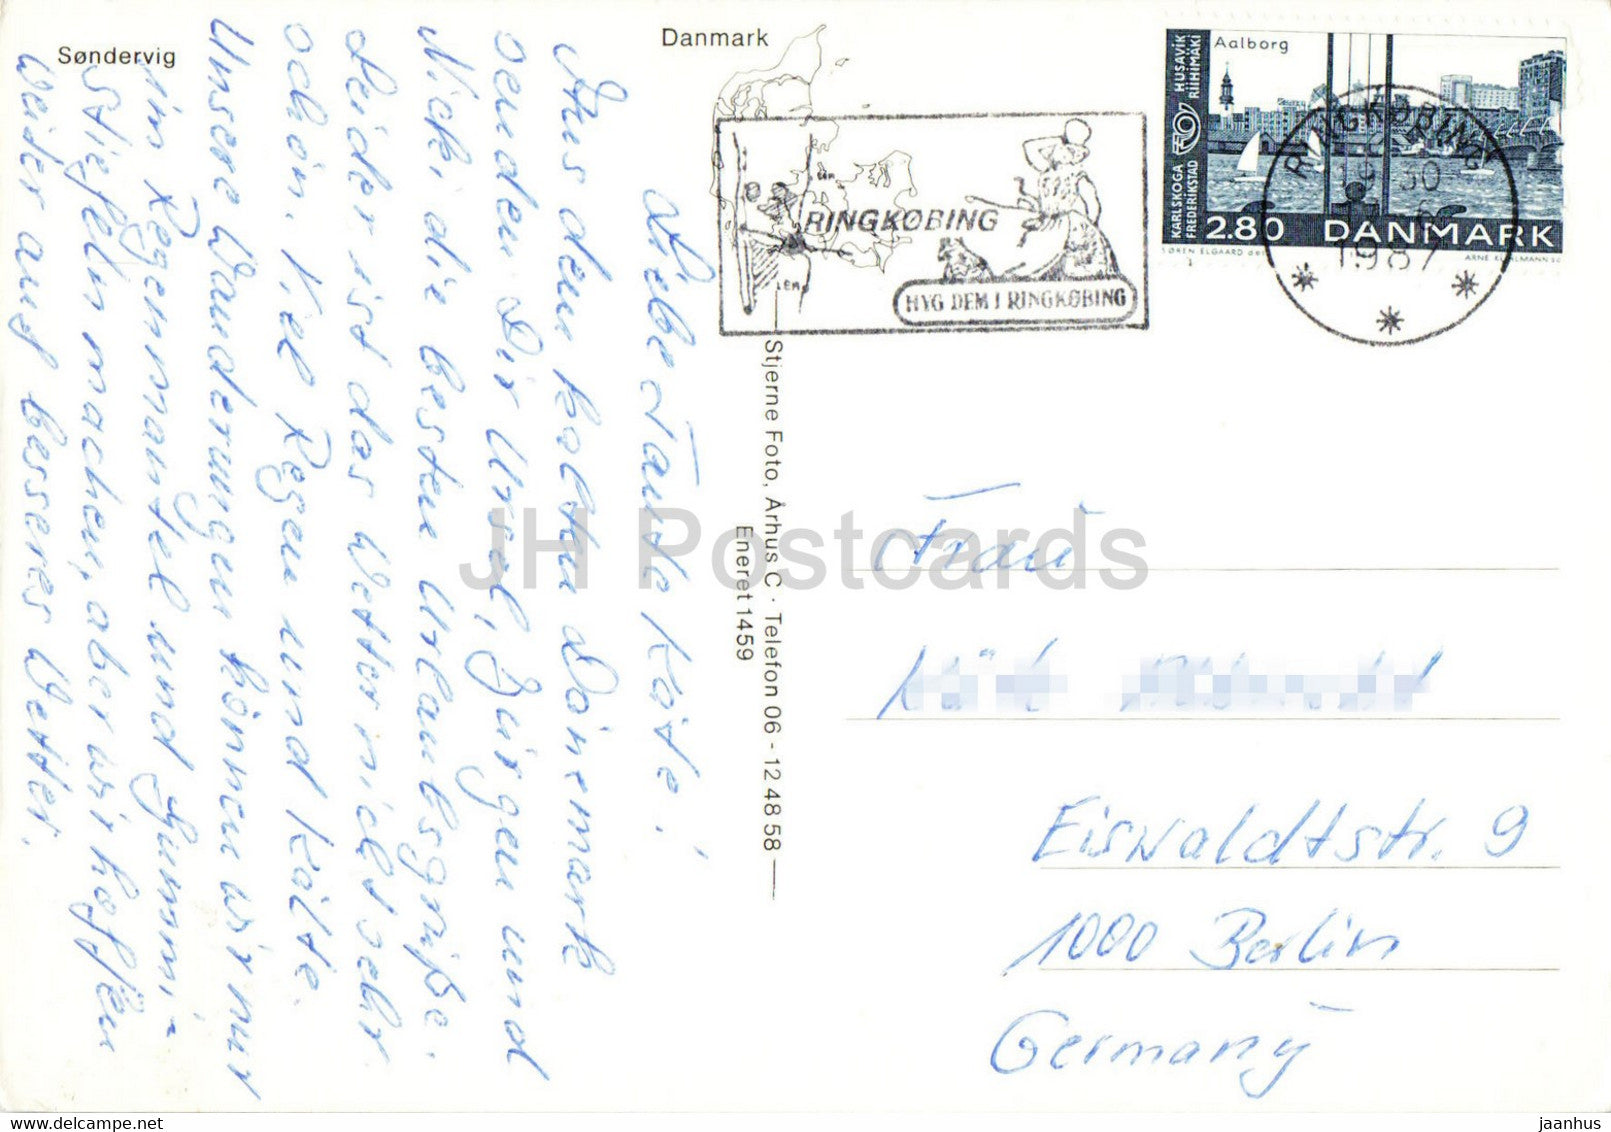 Søndervig
Danmark
Liebe Tante Käte!
Aus dem kalten Dänemark
senden Dir Ursel, Jürgen und
Nicki die besten Urlaubsgrüße.
Leider ist das Wetter nicht sehr
schön. Viel Regen und Kälte.
Unsere Wanderungen können wir nur
im Regenmantel und Gummi-
stiefeln machen, aber wir hoffen
weiter auf besseres Wetter.
Stjerne Foto, Århus C · Telefon 06 - 12 48 58
Eneret 1459
RINGKØBING
LEM
HYG DEM I RINGKØBING
Aalborg
HUSAVIK
RIIHIMÄKI
KARLSKOGA
FREDERIKSTAD
2.80 DANMARK
SØREN ELGAARD
RINGKØBING
1987
Frau
Eiswaldtstr. 9
1000 Berlin
Germany
JH Postcards
www.delcampe.net
jaanhus